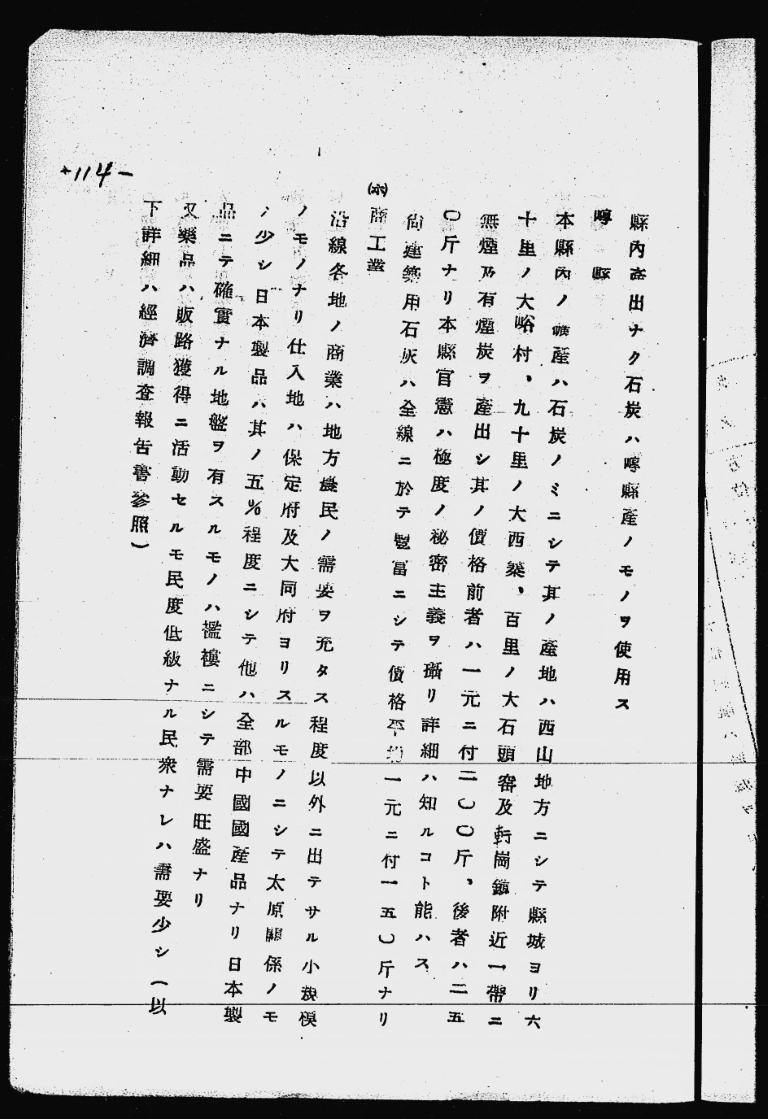 -114-
縣內產出ナク石炭ハ崞縣產ノモノヲ使用ス
崞縣
本縣內ノ礦產ハ石炭ノミニシテ其ノ產地ハ西山地方ニシテ縣城ヨリ六
十里ノ大峪村、九十里ノ大西梁、百里ノ大石頭窰及軒崗鎭附近一帶ニ
無煙乃有煙炭ヲ產出シ其ノ價格前者ハ一元ニ付二〇〇斤、後者ハ二五
〇斤ナリ本縣官憲ハ極度ノ秘密主義ヲ攝リ詳細ハ知ルコト能ハス
尙建築用石灰ハ全線ニ於テ豐富ニシテ價格平均一元ニ付一五〇斤ナリ
㈭商工業
沿線各地ノ商業ハ地方農民ノ需要ヲ充タス程度以外ニ出テサル小規模
ノモノナリ仕入地ハ保定府及大同府ヨリスルモノニシテ太原關係ノモ
ノ少シ日本製品ハ其ノ五%程度ニシテ他ハ全部中國國產品ナリ日本製
品ニテ確實ナル地盤ヲ有スルモノハ襤褸ニシテ需要旺盛ナリ
又藥品ハ販路獲得ニ活動セルモ民度低級ナル民衆ナレハ需要少シ(以
下詳細ハ經濟調査報吿書參照)